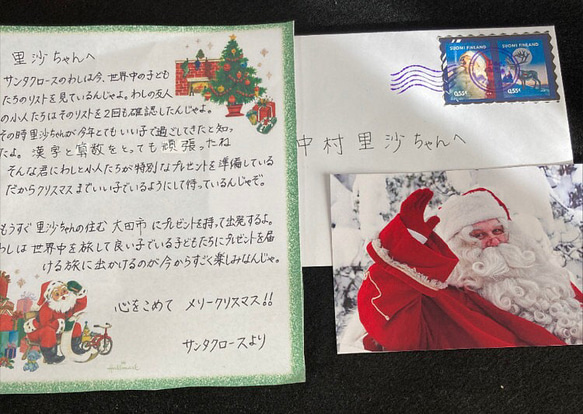 里沙ちゃんへ
サンタクロースのわしは今、世界中の子ども
たちのリストを見ているんじゃよ。わしの友人
の小人たちはそのリストを2回も確認したんじゃよ。
その時里沙ちゃんが今年とてもいい子で過ごしてきたと知っ
たよ。漢字と算数をとっても頑張ったね
そんな君にわしと小人たちが特別なプレゼントを準備している
だからクリスマスまでいい子でいるようにして待っているんじゃぞ。
もうすぐ里沙ちゃんの住む 大田市にプレゼントを持って出発するよ。
わしは世界中を旅して良い子でいる子どもたちにプレゼントを届
ける旅に出かけるのが今からすごく楽しみなんじゃ。
心をこめて メリークリスマス!!
サンタクロースより
Hallmark
SUOMI FINLAND
SUOMI FINLAND
0,55€
0,55€
中村里沙ちゃんへ